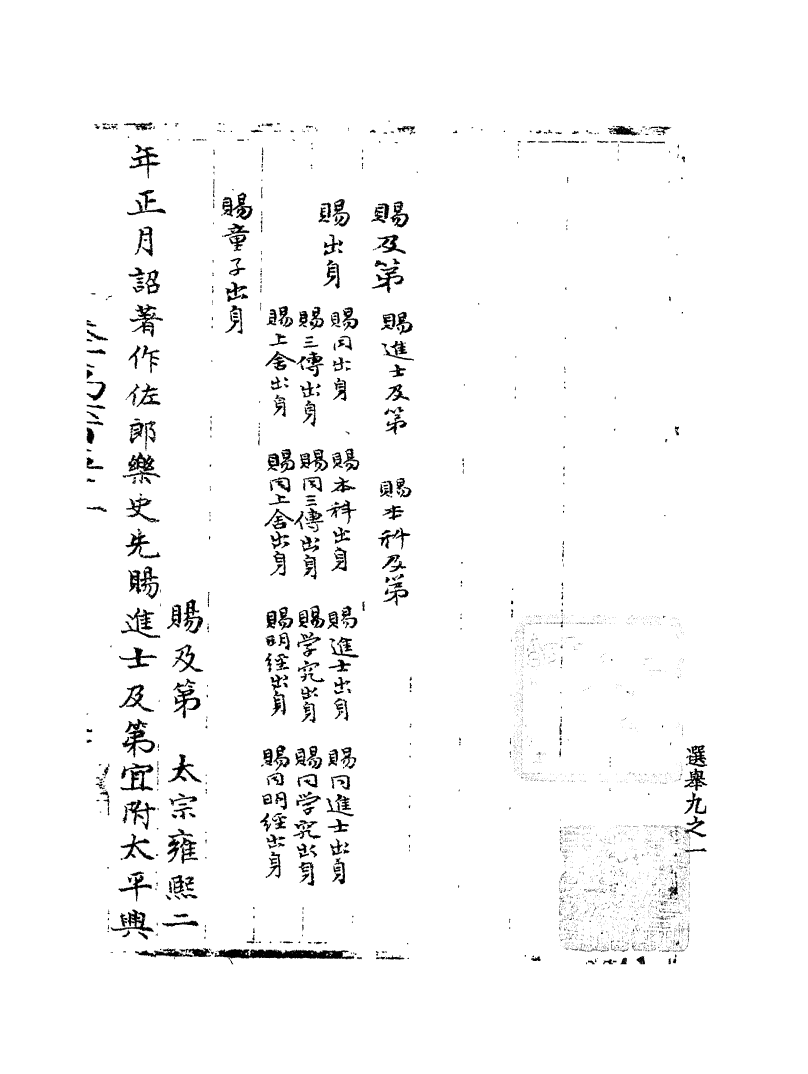 選舉九之一
賜及第　賜進士及第　賜本科及第
賜出身　賜同出身　賜本科出身　賜進士出身　賜同進士出身
賜三傳出身　賜同三傳出身　賜学究出身　賜同学究出身
賜上舍出身　賜同上舍出身　賜明經出身　賜同明經出身
賜童子出身
賜及第　太宗雍熙二
年正月詔著作佐郎樂史先賜進士及第宜附太平興